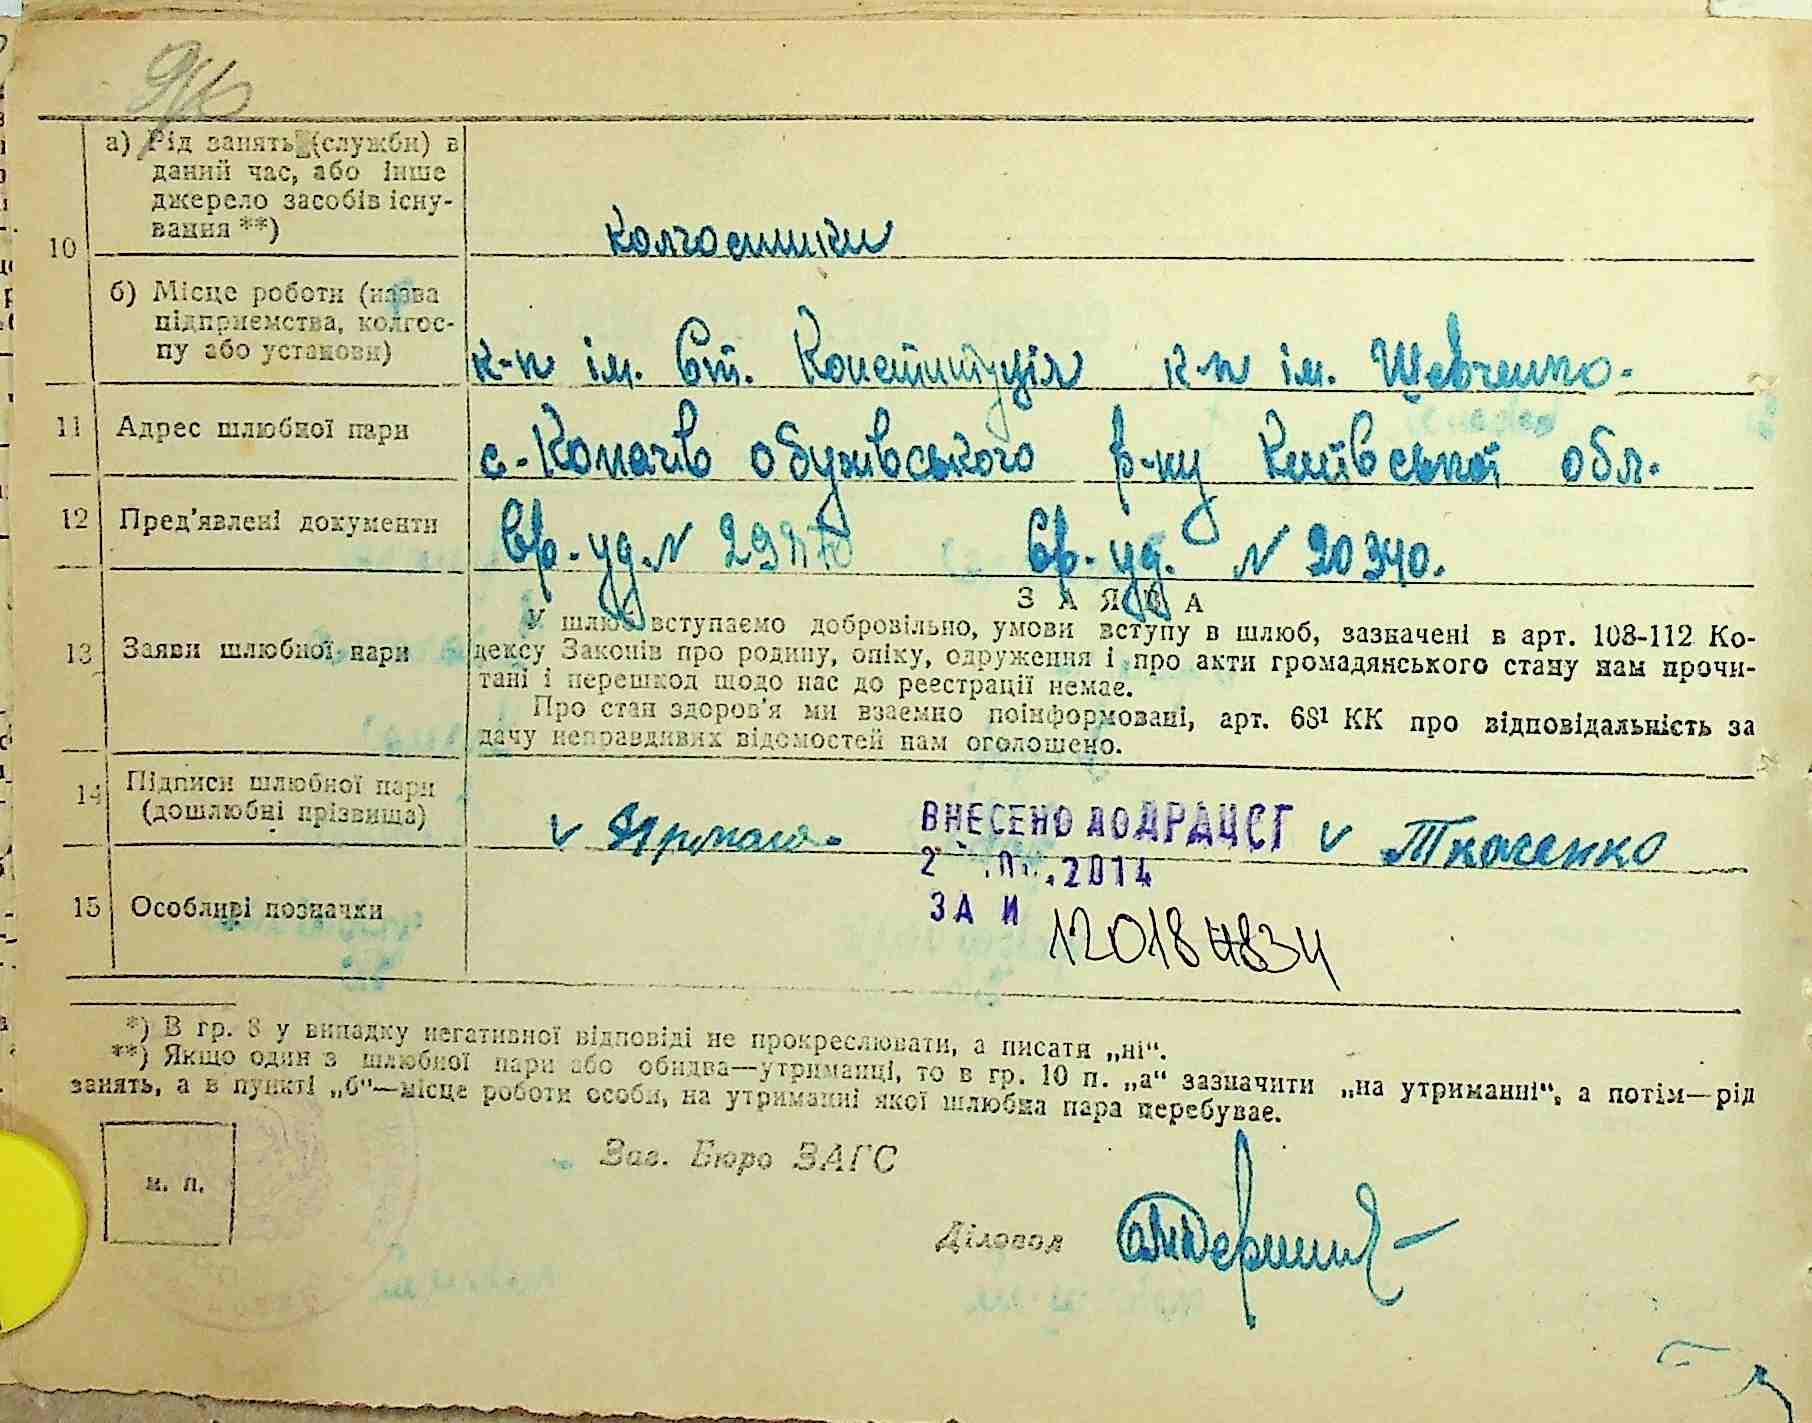 10
а) Рід занять (служби) в
даний час, або інше
джерело засобів існу-
вання **)
колгоспники
б) Місце роботи (назва
підприємства, колгос-
пу або установи)
к-п ім. Ст. Конституція к-п ім. Шевченко.
11 Адрес шлюбної пари
с. Копачів обухівського р-ну Київської обл.
12 Пред'явлені документи
Вр. уд. № Вр. уд. № 20340.
13 Заяви шлюбної пари
ЗАЯВА
У шлюб вступаємо добровільно, умови вступу в шлюб, зазначені в арт. 108-112 Ко-
дексу Законів про родину, опіку, одруження і про акти громадянського стану нам прочи-
тані і перешкод щодо нас до реєстрації немає.
Про стан здоров'я ми взаємно поінформовані, арт. 68¹ КК про відповідальність за
дачу неправдивих відомостей нам оголошено.
14 Підписи шлюбної пари
(дошлюбні прізвища)
v v Ткаченко
ВНЕСЕНО ДО ДРАЦСГ
2014
ЗА №
120184834
15 Особливі позначки
*) В гр. 8 у випадку негативної відповіді не прокреслювати, а писати „ні“.
**) Якщо один з шлюбної пари або обидва—утриманці, то в гр. 10 п. „а“ зазначити „на утриманні“, а потім—рід
занять, а в пункті „б“—місце роботи особи, на утриманні якої шлюбна пара перебуває.
м. п.
Зав. Бюро ЗАГС
Діловод